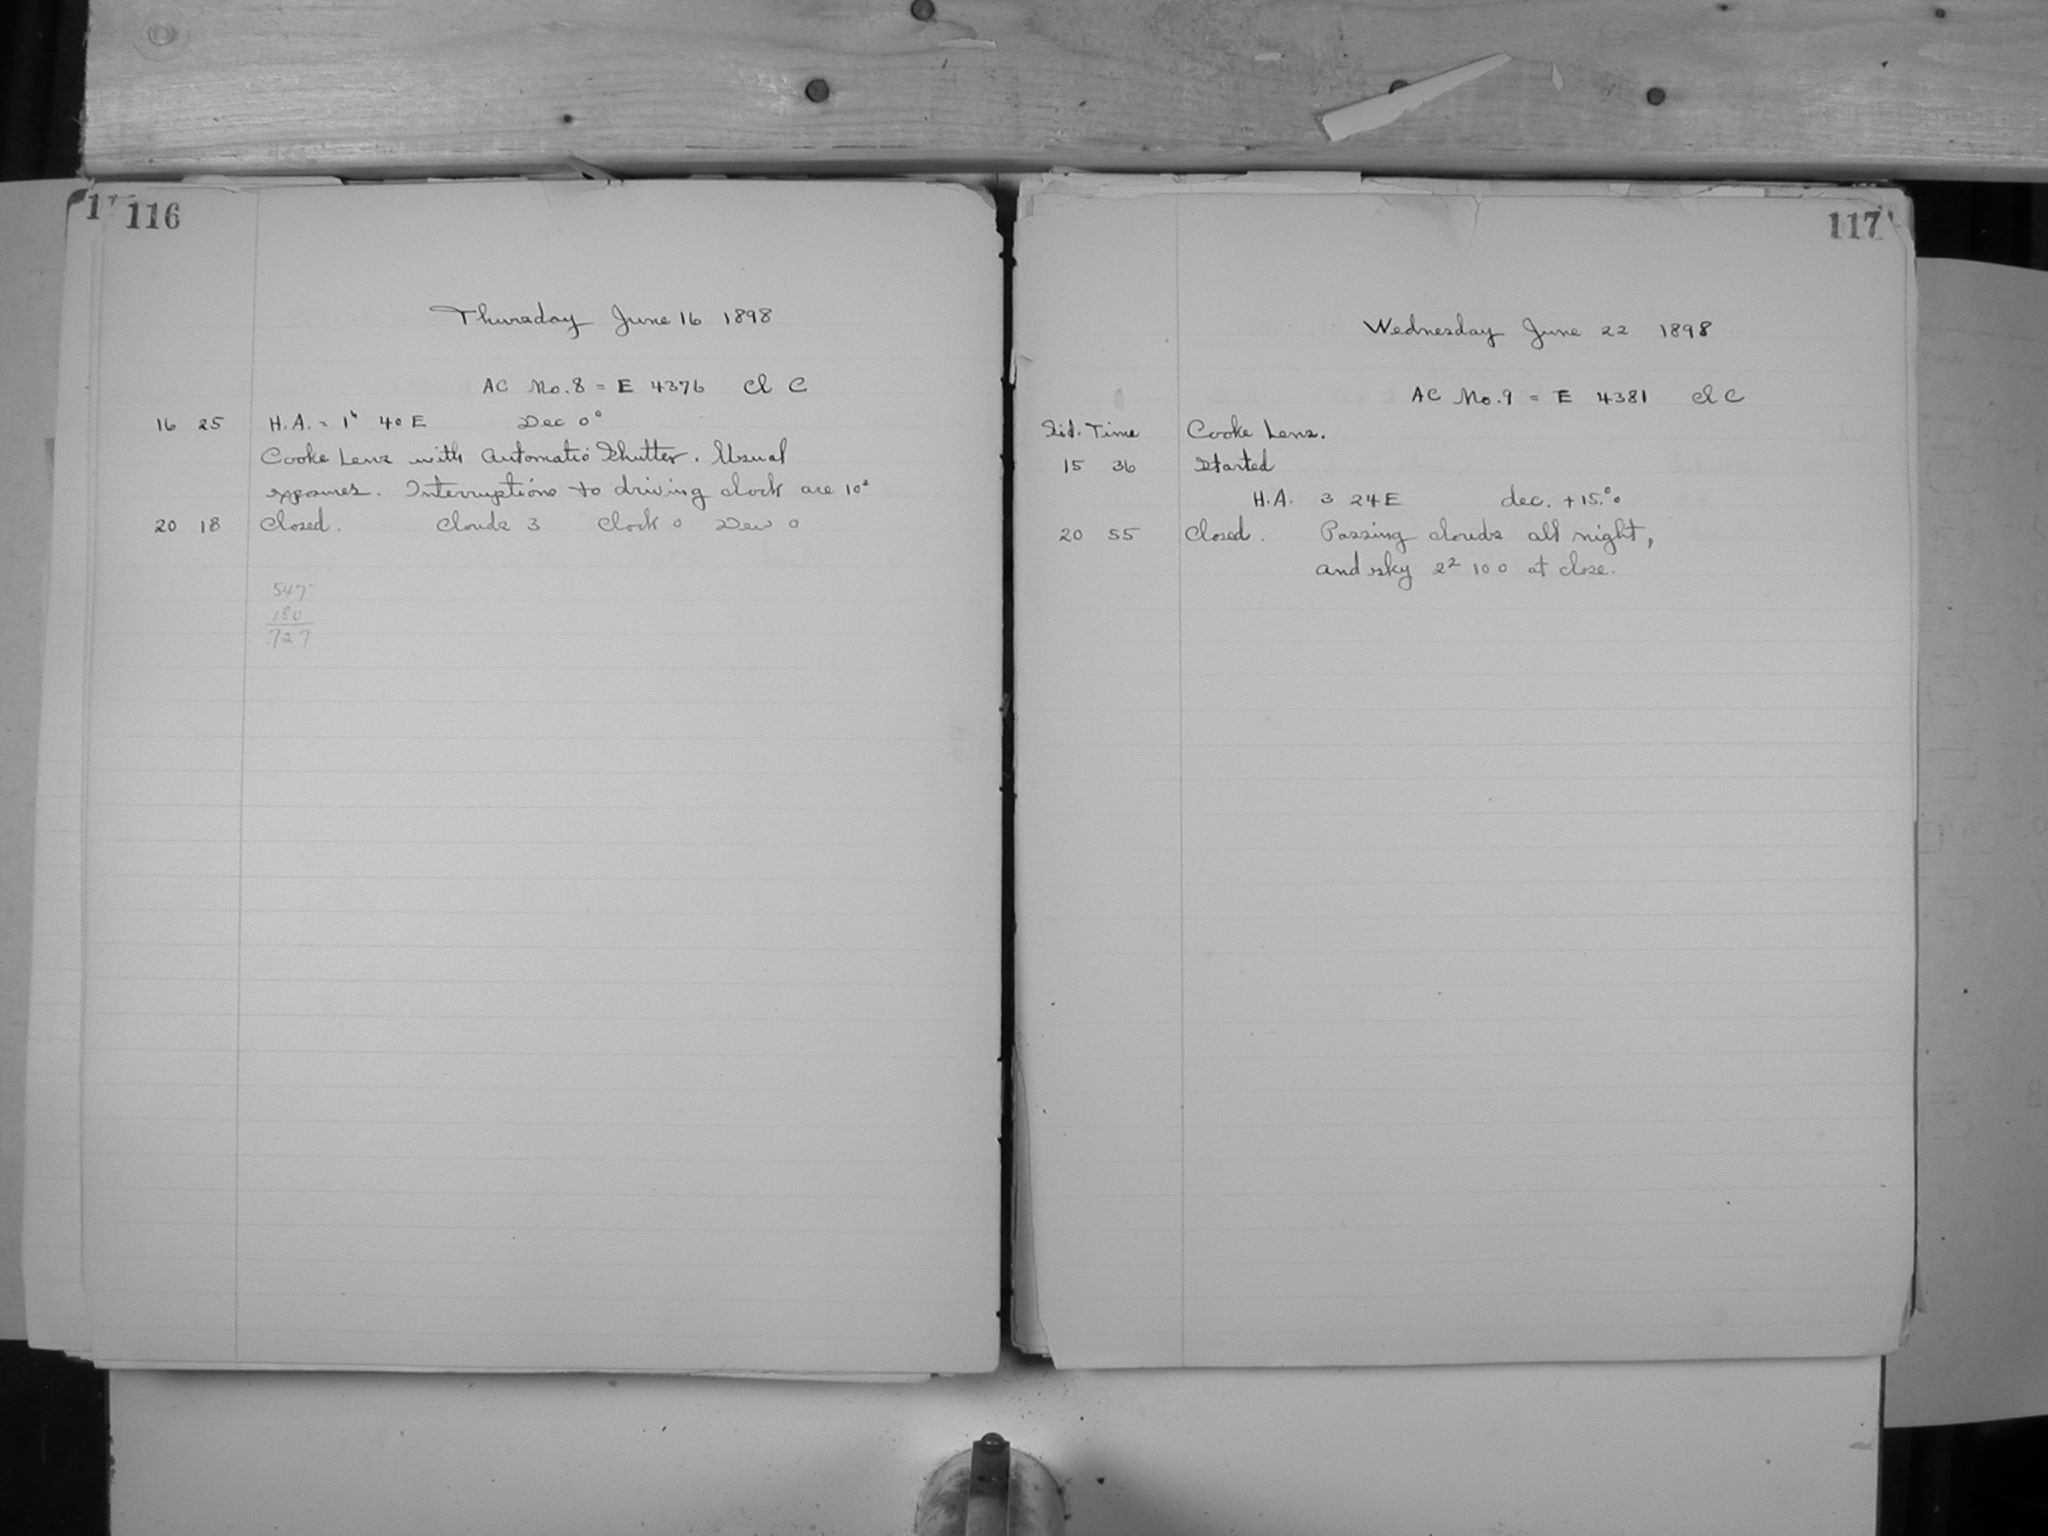 116
Thursday June 16 1898
AC No. 8 = E 4376 Cl C
16 25 H.A. = 1h 40 E Dec 0°
Cooke Lens with Automatic Shutter. Usual
exposures. Interruptions to driving clock are 10s
20 18 Closed. Clouds 3 Clock 0 Dew 0
547
180
727
117
Wednesday June 22 1898
AC No. 9 = E 4381 Cl C
Sid. Time Cooke Lens.
15 36 Started
H.A. 3 24 E dec. +15.°0
20 55 Closed. Passing clouds all night,
and sky 2² 10 0 at close.